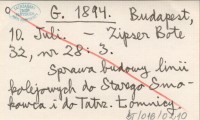 G. 1894. Budapest,
10. Juli. – Zipser Bote
32, nr 28: 3.
Sprawa budowy linii
kolejowych do Starego Smo-
kowca i do Tatrz. Łomnicy.